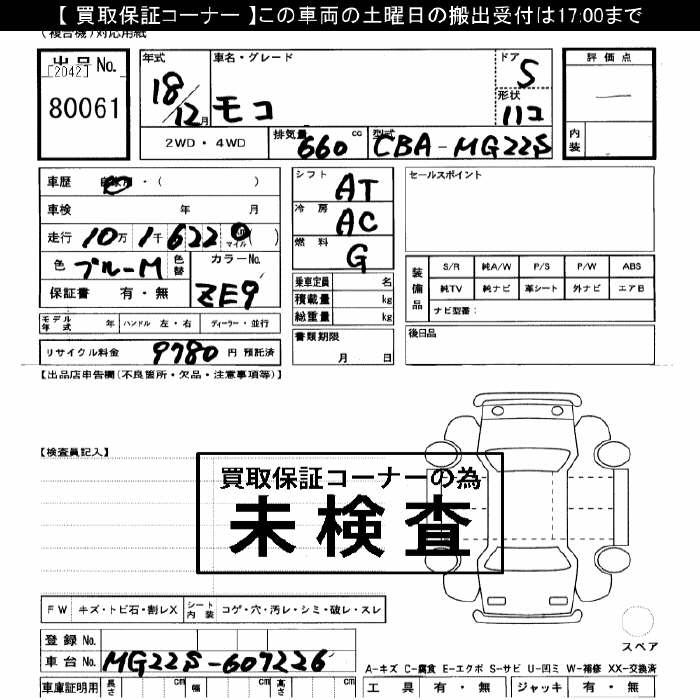 【 買取保証コーナー 】この車両の土曜日の搬出受付は17:00まで
(複合機)対応用紙
出品No.
[2042]
80061
年式
18/12月
車名・グレード
モコ
ドア
5
形状
ハコ
評価点
—
内装
2WD・4WD
排気量 660 cc
型式 CBA-MG22S
車歴 自家用・( )
車検 年 月
走行 10万1千622 km マイル ( )
色 ブルーM 色替
カラーNo. ZE9
保証書 有・無
モデル年式 年 ハンドル 左・右 ディーラー・並行
リサイクル料金 9780 円 預託済
シフト AT
冷房 AC
燃料 G
乗車定員 名
積載量 kg
総重量 kg
書類期限
月 日
セールスポイント
装備品
S/R 純A/W P/S P/W ABS
純TV 純ナビ 革シート 外ナビ エアB
ナビ型番:
後日品
【出品店申告欄(不良箇所・欠品・注意事項等)】
【検査員記入】
買取保証コーナーの為
未検査
FW キズ・トビ石・割レX シート内装 コゲ・穴・汚レ・シミ・破レ・スレ
登録No.
車台No. MG22S-607226
スペア
A-キズ C-腐食 E-エクボ S-サビ U-凹ミ W-補修 XX-交換済
車庫証明用 長さ cm 幅 cm 高さ cm
工具 有・無 ジャッキ 有・無